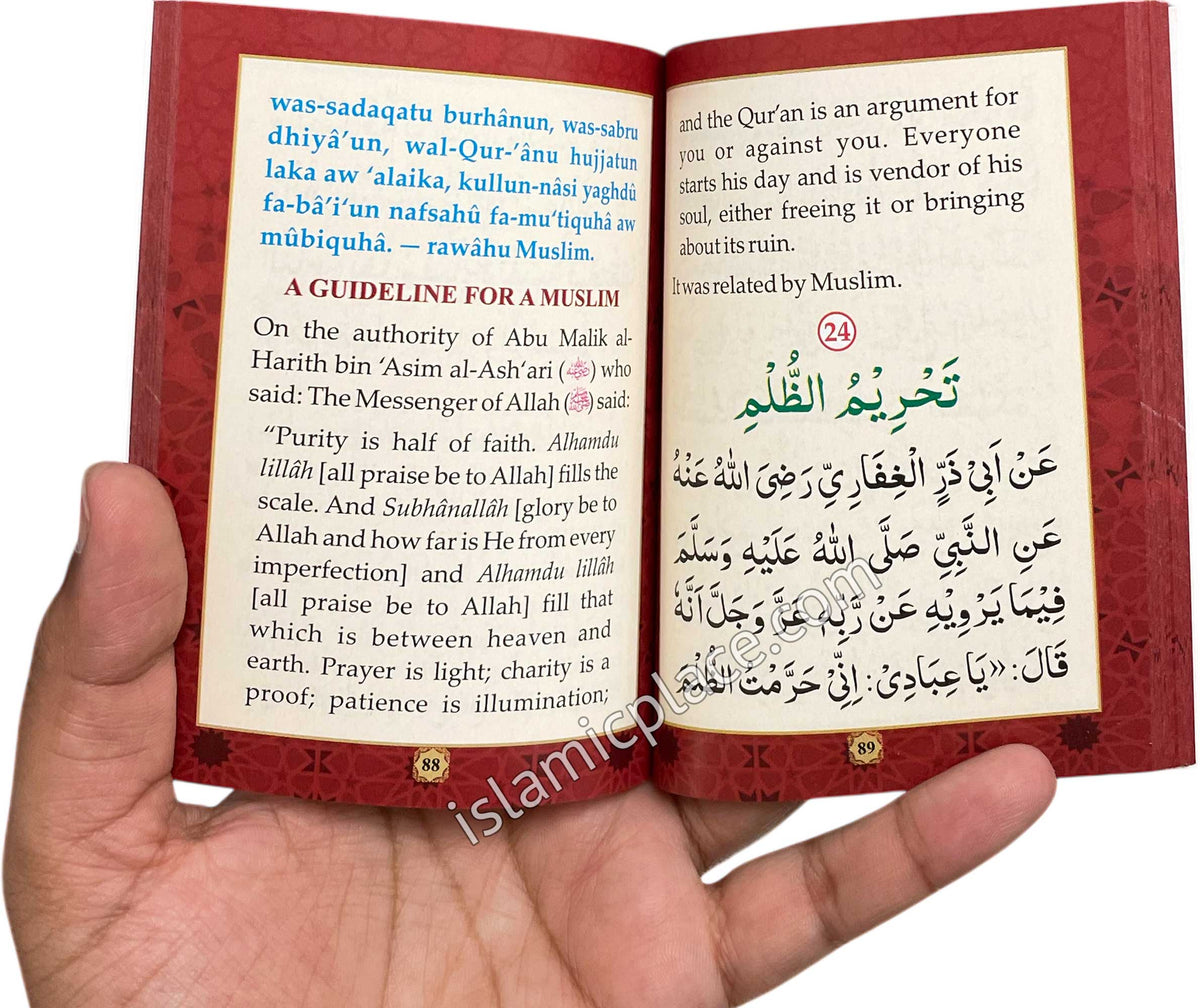 was-sadaqatu burhânun, was-sabru
dhiyâ’un, wal-Qur-’ânu hujjatun
laka aw ‘alaika, kullun-nâsi yaghdû
fa-bâ’i‘un nafsahû fa-mu‘tiquhâ aw
mûbiquhâ. — rawâhu Muslim.
A GUIDELINE FOR A MUSLIM
On the authority of Abu Malik al-
Harith bin ‘Asim al-Ash‘ari () who
said: The Messenger of Allah (ﷺ) said:
“Purity is half of faith. Alhamdu
lillâh [all praise be to Allah] fills the
scale. And Subhânallâh [glory be to
Allah and how far is He from every
imperfection] and Alhamdu lillâh
[all praise be to Allah] fill that
which is between heaven and
earth. Prayer is light; charity is a
proof; patience is illumination;
88
and the Qur’an is an argument for
you or against you. Everyone
starts his day and is vendor of his
soul, either freeing it or bringing
about its ruin.
It was related by Muslim.
24
تَحْرِيْمُ الظُّلْمِ
عَنْ اَبِيْ ذَرٍّ الْغِفَارِيِّ رَضِيَ اللهُ عَنْهُ
عَنِ النَّبِيِّ صَلَّى اللهُ عَلَيْهِ وَسَلَّمَ
فِيْمَا يَرْوِيْهِ عَنْ رَّبِّهٖ عَزَّ وَجَلَّ اَنَّهٗ
قَالَ: «يَا عِبَادِيْ: اِنِّيْ حَرَّمْتُ الظُّلْمَ
89
islamicplace.com